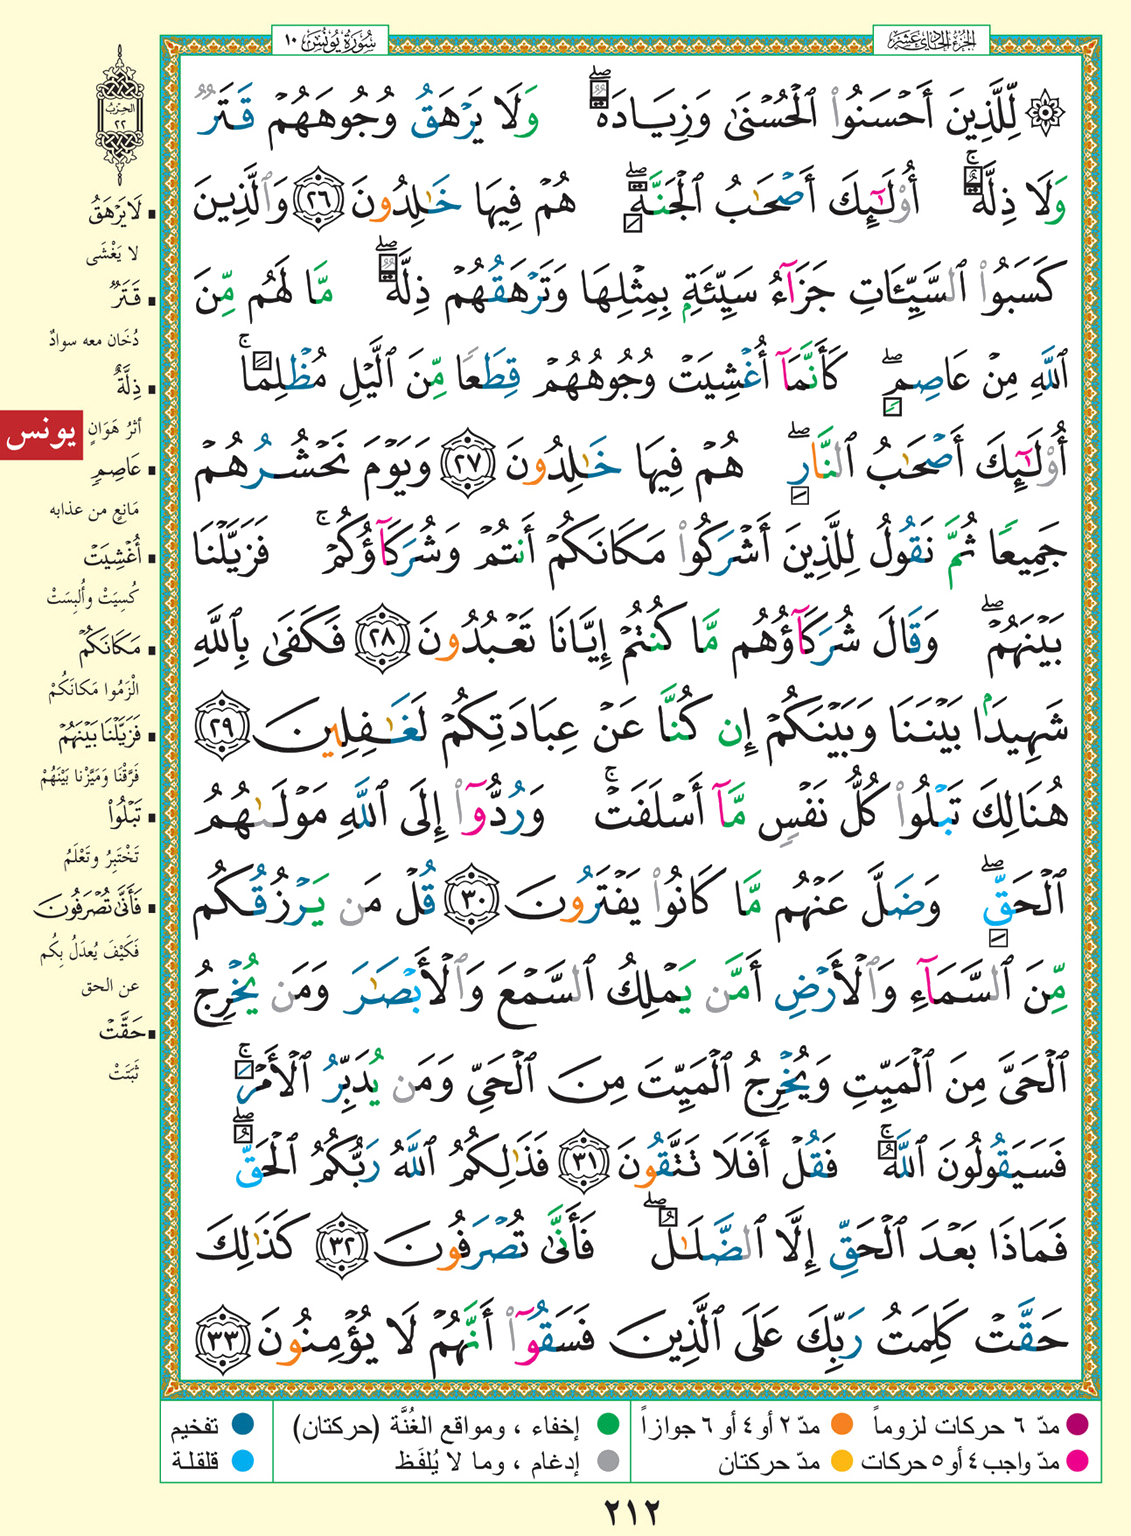 الجزء الحادي عشر
سُورَةُ يُونُسَ ١٠
۞ لِّلَّذِينَ أَحۡسَنُواْ ٱلۡحُسۡنَىٰ وَزِيَادَةٞۖ وَلَا يَرۡهَقُ وُجُوهَهُمۡ قَتَرٞ
وَلَا ذِلَّةٌۚ أُوْلَٰٓئِكَ أَصۡحَٰبُ ٱلۡجَنَّةِۖ هُمۡ فِيهَا خَٰلِدُونَ ٢٦ وَٱلَّذِينَ
كَسَبُواْ ٱلسَّيِّـَٔاتِ جَزَآءُ سَيِّئَةِۭ بِمِثۡلِهَا وَتَرۡهَقُهُمۡ ذِلَّةٞۖ مَّا لَهُم مِّنَ
ٱللَّهِ مِنۡ عَاصِمٖۖ كَأَنَّمَآ أُغۡشِيَتۡ وُجُوهُهُمۡ قِطَعٗا مِّنَ ٱلَّيۡلِ مُظۡلِمًاۚ
أُوْلَٰٓئِكَ أَصۡحَٰبُ ٱلنَّارِۖ هُمۡ فِيهَا خَٰلِدُونَ ٢٧ وَيَوۡمَ نَحۡشُرُهُمۡ
جَمِيعٗا ثُمَّ نَقُولُ لِلَّذِينَ أَشۡرَكُواْ مَكَانَكُمۡ أَنتُمۡ وَشُرَكَآؤُكُمۡۚ فَزَيَّلۡنَا
بَيۡنَهُمۡۖ وَقَالَ شُرَكَآؤُهُم مَّا كُنتُمۡ إِيَّانَا تَعۡبُدُونَ ٢٨ فَكَفَىٰ بِٱللَّهِ
شَهِيدَۢا بَيۡنَنَا وَبَيۡنَكُمۡ إِن كُنَّا عَنۡ عِبَادَتِكُمۡ لَغَٰفِلِينَ ٢٩
هُنَالِكَ تَبۡلُواْ كُلُّ نَفۡسٖ مَّآ أَسۡلَفَتۡۚ وَرُدُّوٓاْ إِلَى ٱللَّهِ مَوۡلَىٰهُمُ
ٱلۡحَقِّۖ وَضَلَّ عَنۡهُم مَّا كَانُواْ يَفۡتَرُونَ ٣٠ قُلۡ مَن يَرۡزُقُكُم
مِّنَ ٱلسَّمَآءِ وَٱلۡأَرۡضِ أَمَّن يَمۡلِكُ ٱلسَّمۡعَ وَٱلۡأَبۡصَٰرَ وَمَن يُخۡرِجُ
ٱلۡحَيَّ مِنَ ٱلۡمَيِّتِ وَيُخۡرِجُ ٱلۡمَيِّتَ مِنَ ٱلۡحَيِّ وَمَن يُدَبِّرُ ٱلۡأَمۡرَۚ
فَسَيَقُولُونَ ٱللَّهُۚ فَقُلۡ أَفَلَا تَتَّقُونَ ٣١ فَذَٰلِكُمُ ٱللَّهُ رَبُّكُمُ ٱلۡحَقُّۖ
فَمَاذَا بَعۡدَ ٱلۡحَقِّ إِلَّا ٱلضَّلَٰلُۖ فَأَنَّىٰ تُصۡرَفُونَ ٣٢ كَذَٰلِكَ
حَقَّتۡ كَلِمَتُ رَبِّكَ عَلَى ٱلَّذِينَ فَسَقُوٓاْ أَنَّهُمۡ لَا يُؤۡمِنُونَ ٣٣
الحِزبُ
٢٢
لَا يَرْهَقُ
لا يَغْشَى
قَتَرٌ
دُخَان معه سوادٌ
ذِلَّةٌ
أثرُ هَوَانٍ
يونس
عَاصِمٍ
مَانِعٍ من عذابه
أُغْشِيَتْ
كُسِيَتْ وأُلبِسَتْ
مَكَانَكُمْ
الْزَمُوا مَكانَكُمْ
فَزَيَّلْنَا بَيْنَهُمْ
فَرَّقْنَا وَمَيَّزْنا بَيْنَهُمْ
تَبْلُواْ
تَخْتَبِرُ وتَعْلَمُ
فَأَنَّىٰ تُصْرَفُونَ
فَكَيْفَ يُعدَلُ بِكُم
عن الحق
حَقَّتْ
ثَبَتَتْ
مدّ ٦ حركات لزوماً
مدّ ٢ أو ٤ أو ٦ جوازاً
إخفاء ، ومواقع الغُنَّة (حركتان)
تفخيم
مدّ واجب ٤ أو ٥ حركات
مدّ حركتان
إدغام ، وما لا يُلفَظ
قلقلة
٢١٢